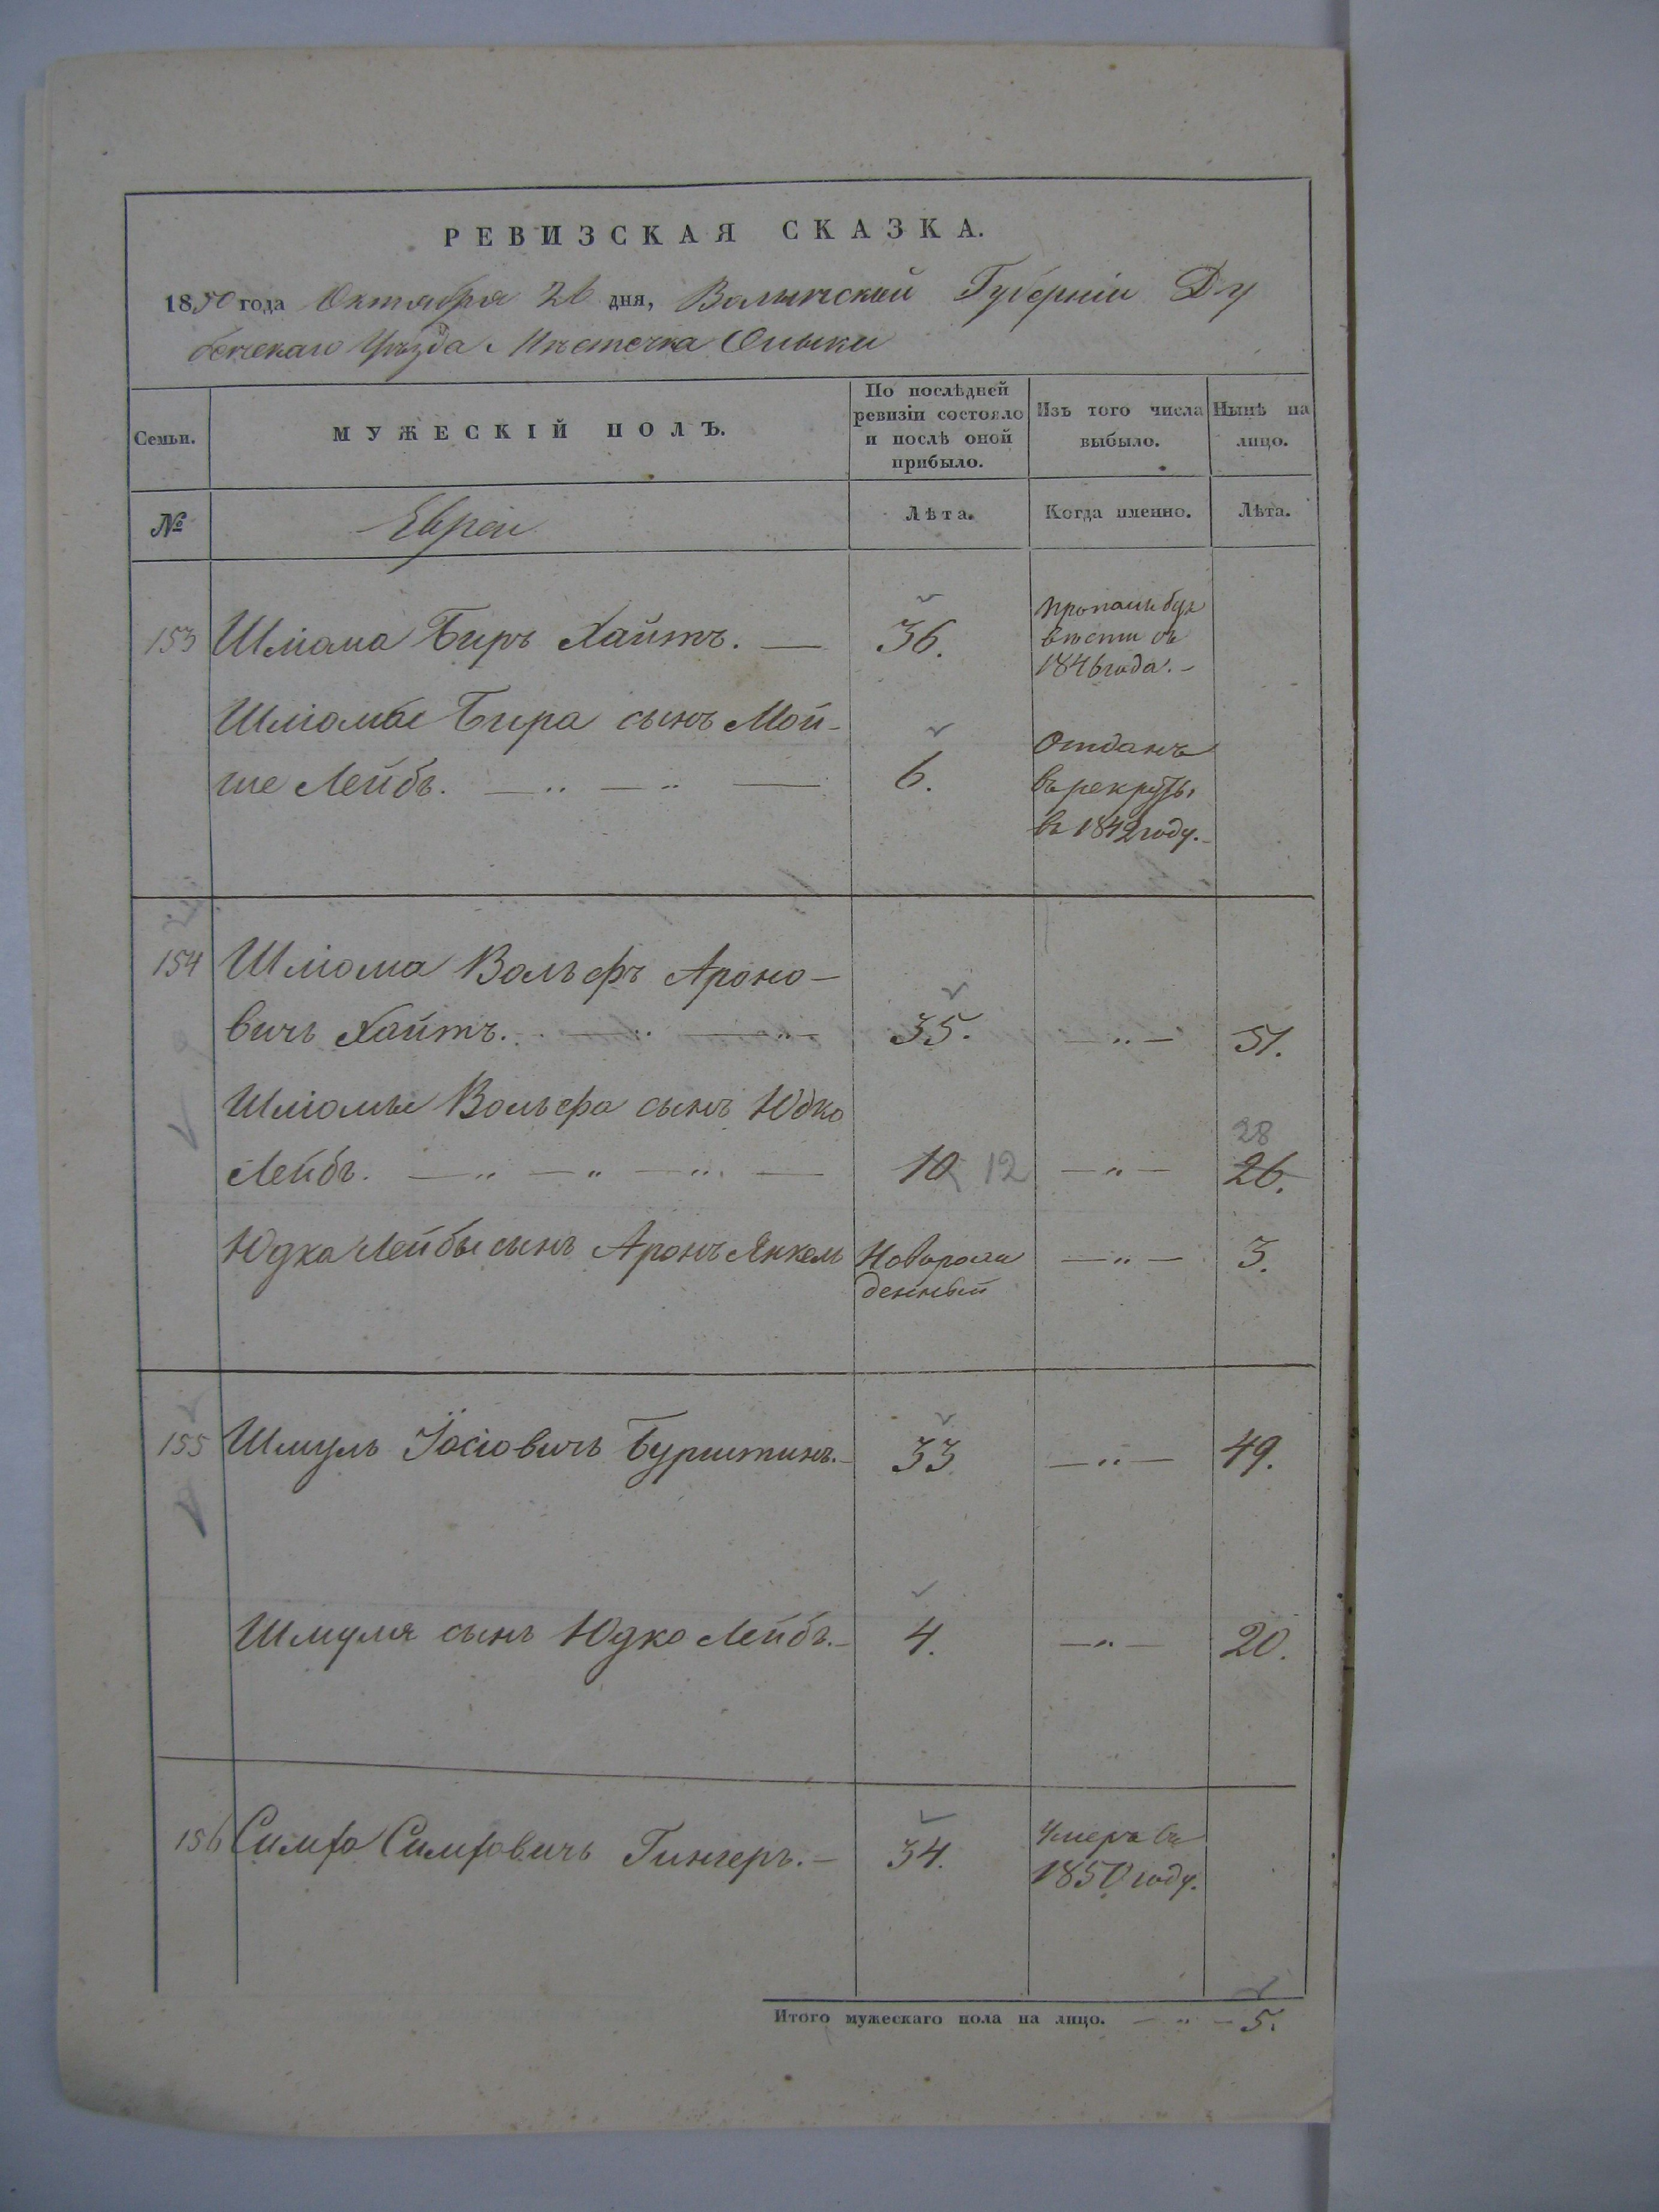 РЕВИЗСКАЯ СКАЗКА.
1850 года Октября 26 дня, Волынской Губерніи Ду
бенскаго Уѣзда Мѣстечка Олыки
Семьи.
МУЖЕСКІЙ ПОЛЪ.
По послѣдней
ревизіи состояло
и послѣ оной
прибыло.
Изъ того числа
выбыло.
Нынѣ на
лицо.
№
Евреи
Лѣта.
Когда именно.
Лѣта.
153 Шліома Биръ Хайтъ. — 36.
Пропалъ безъ
вѣсти съ
1846 года. -
Шліомы Бира сынъ Мой-
ше Лейбъ. — „ — „ — 6.
Отданъ
въ рекруты
въ 1842 году. -
154 Шліома Вольфъ Ароно-
вичъ Хайтъ. — „ — „ 35. — „ — 51.
Шліомы Вольфа сынъ Юдко
28
Лейбъ. — „ — „ — „ — 10 12 — „ — 26.
Юдка Лейбы сынъ Аронъ Янкель Новорож
денный — „ — 3.
155 Шмуль Іосіовичъ Бурштинъ. - 33 — „ — 49.
Шмуля сынъ Юдко Лейбъ. - 4. — „ — 20.
156 Симха Симховичъ Гингеръ. - 34.
Умеръ въ
1850 году.
Итого мужескаго пола на лицо. — „ — 5.